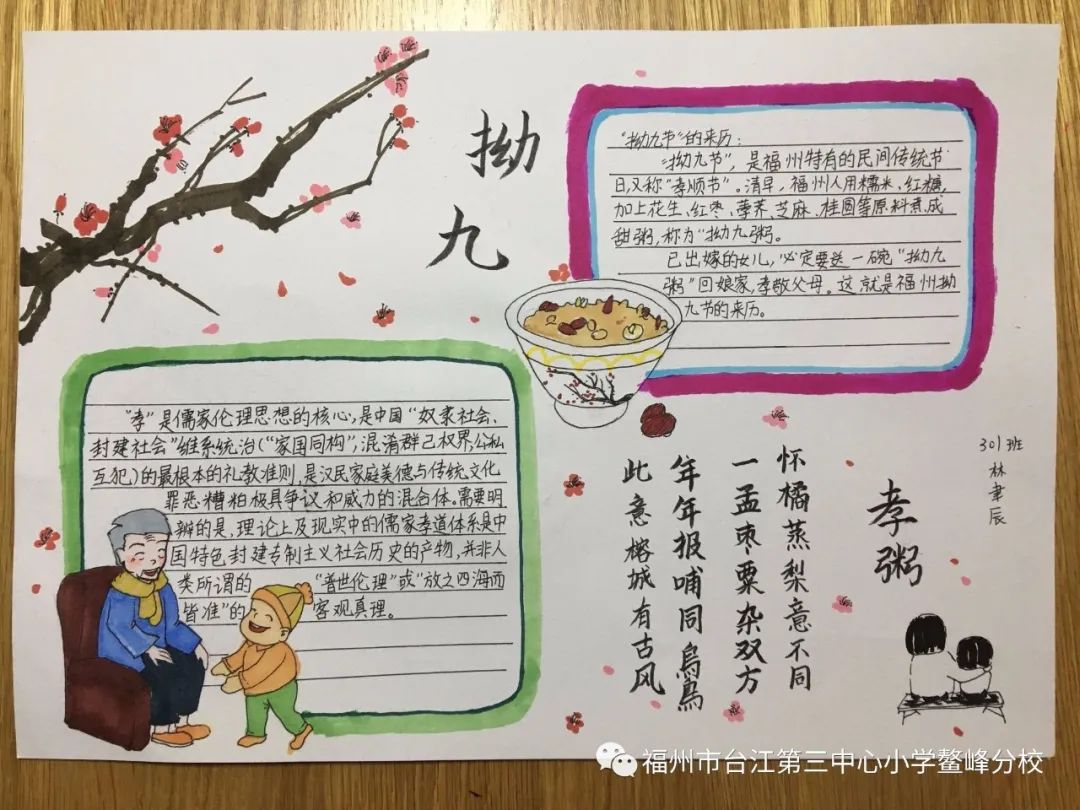 拗
九
“拗九节”的来历：
“拗九节”，是福州特有的民间传统节
日，又称“孝顺节”。清早，福州人用糯米、红糖，
加上花生、红枣、荸荠、芝麻、桂圆等原料煮成
甜粥，称为“拗九粥。
已出嫁的女儿，必定要送一碗“拗九
粥”回娘家，孝敬父母。这就是福州拗
九节的来历。
“孝”是儒家伦理思想的核心，是中国“奴隶社会、
封建社会”维系统治(“家国同构”，混淆群己权界，公私
互犯)的最根本的礼教准则，是汉民家庭美德与传统文化
罪恶糟粕极具争议和威力的混合体。需要明
辨的是，理论上及现实中的儒家孝道体系是中
国特色封建专制主义社会历史的产物，并非人
类所谓的“普世伦理”或“放之四海而
皆准”的客观真理。
301班
林聿辰
孝粥
怀橘蒸梨意不同
一盂枣粟杂双方
年年报哺同鸟鸟
此意榕城有古风
福州市台江第三中心小学鳌峰分校